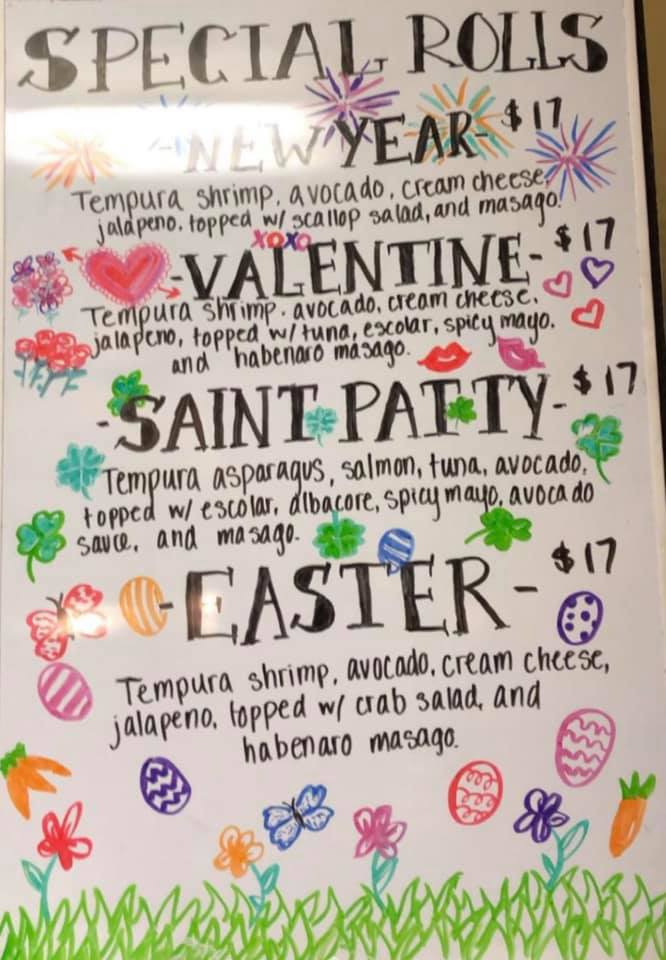 SPECIAL ROLLS
-NEW YEAR- $17
Tempura shrimp, avocado, cream cheese,
jalapeno, topped w/ scallop salad, and masago.
XOXO
-VALENTINE- $17
Tempura shrimp, avocado, cream cheese,
jalapeno, topped w/ tuna, escolar, spicy mayo.
and habenaro masago.
-SAINT PATTY- $17
Tempura asparagus, salmon, tuna, avocado,
topped w/ escolar, albacore, spicy mayo, avocado
sauce, and masago.
-EASTER- $17
Tempura shrimp, avocado, cream cheese,
jalapeno, topped w/ crab salad, and
habenaro masago.